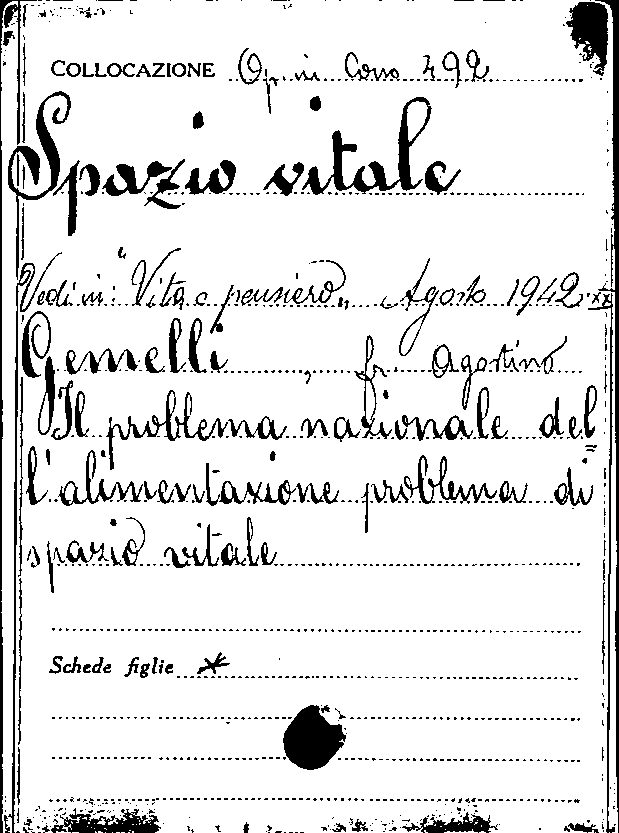 COLLOCAZIONE Op. in Corso 492
Spazio vitale
Vedi in: "Vita e pensiero„ Agosto 1942-XX
Gemelli, fr. Agostino
Il problema nazionale del=
l'alimentazione problema di
spazio vitale
Schede figlie